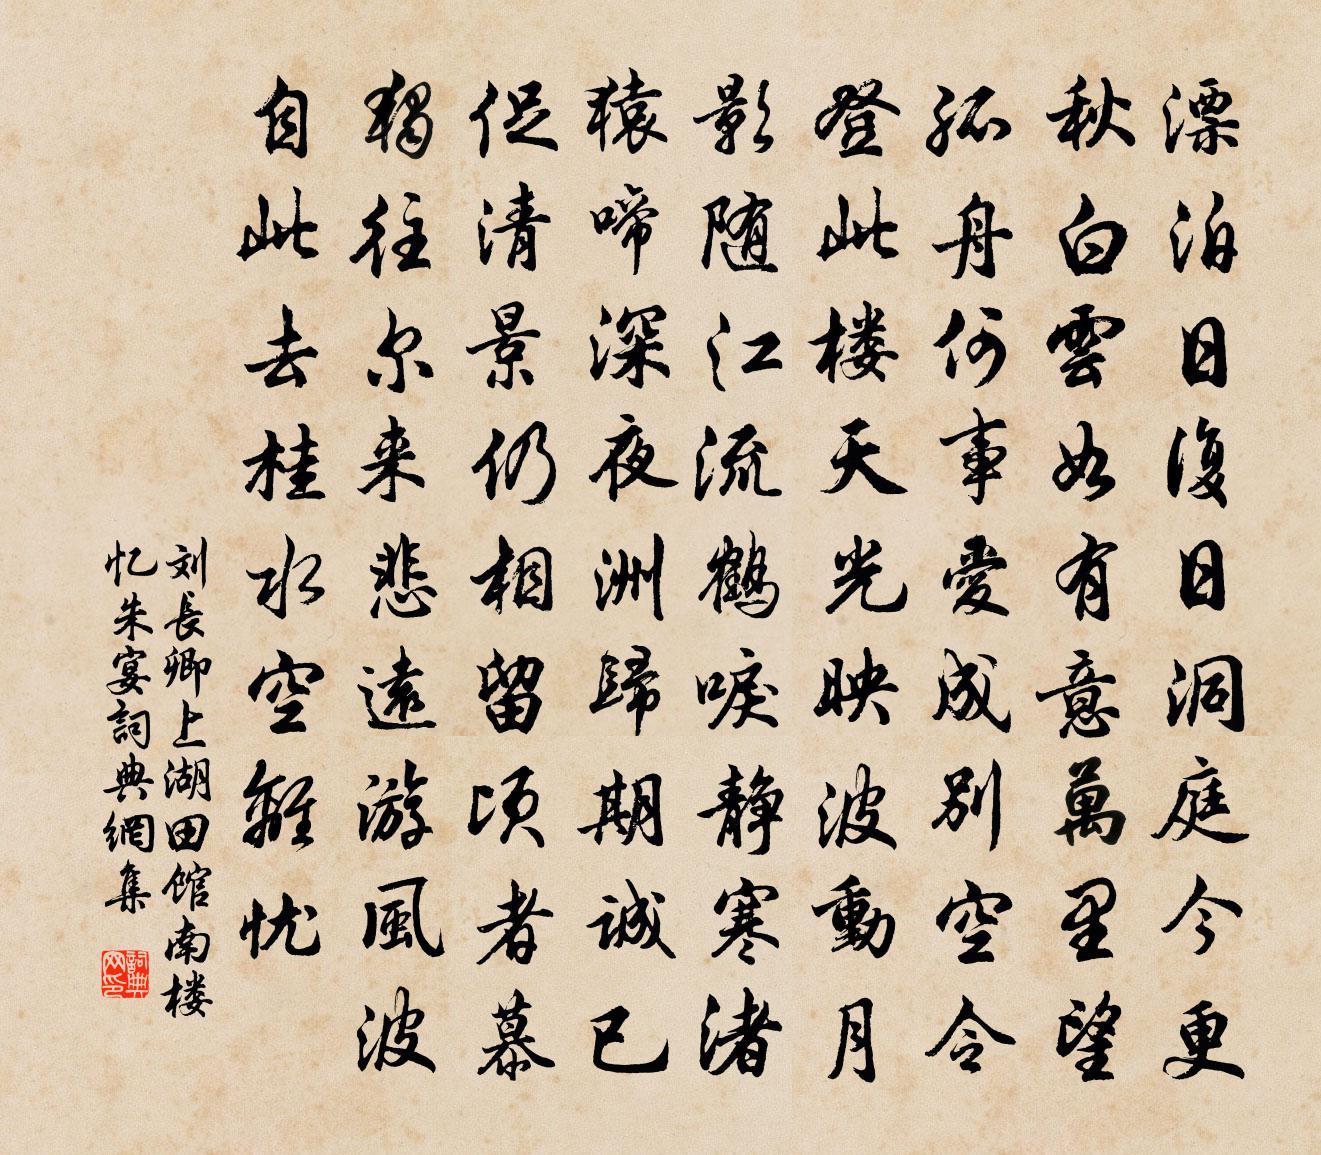 漂泊日復日洞庭今更
秋白雲如有意萬里望
孤舟何事愛成别空令
登此楼天光映波動月
影随江流鶴唳静寒渚
猿啼深夜洲歸期誠已
促清景仍相留頃者慕
獨往尔来悲遠游風波
自此去桂水空離忧
刘長卿上湖田館南楼
忆朱宴詞典網集
詞典网印